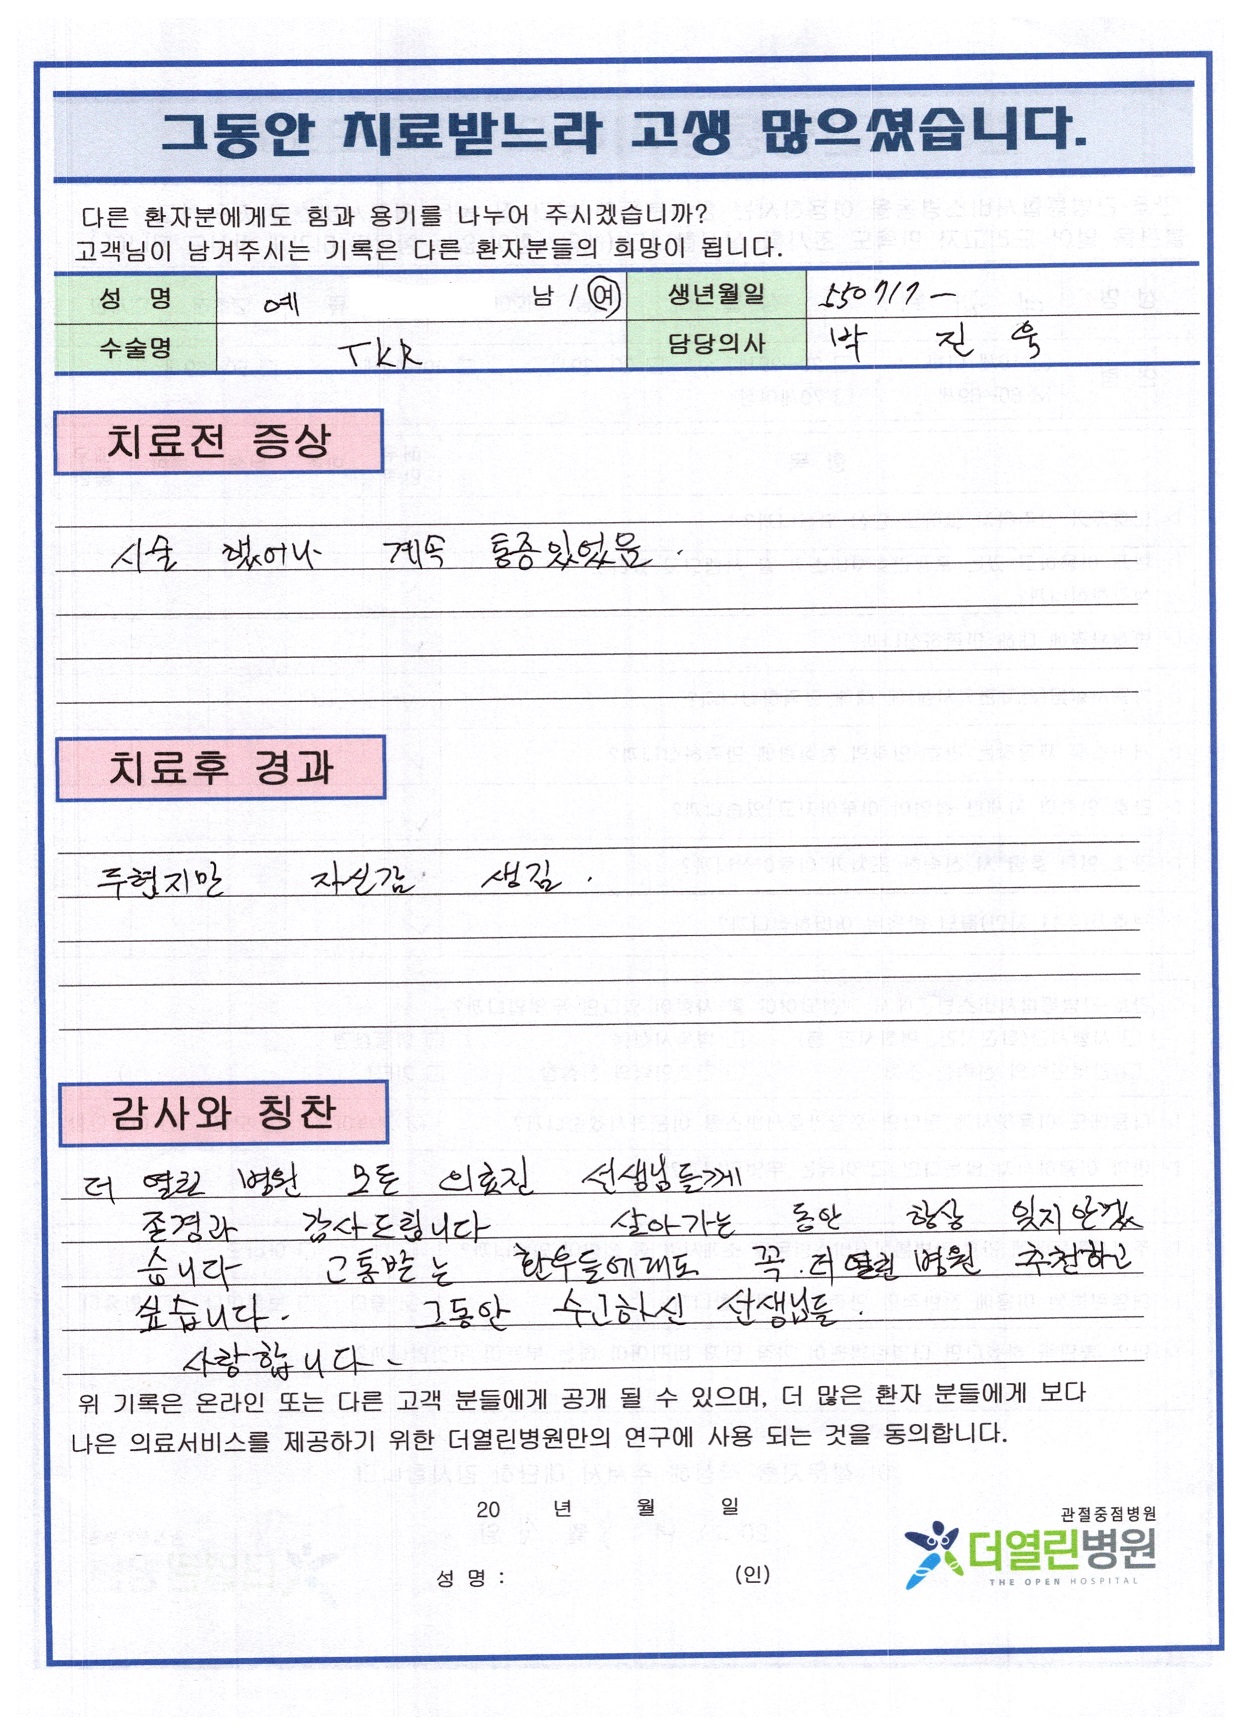 그동안 치료받느라 고생 많으셨습니다.
다른 환자분에게도 힘과 용기를 나누어 주시겠습니까?
고객님이 남겨주시는 기록은 다른 환자분들의 희망이 됩니다.
성 명 예 남 / 여 생년월일 550717 -
수술명 TKR 담당의사 박 진 욱
치료전 증상
시술 했어나 계속 통증있었뭄.
치료후 경과
두렵지만 자신감 생김.
감사와 칭찬
더 열린 병원 모든 의료진 선생님들께
존경과 감사드립니다 살아가는 동안 항상 잊지안겠
습니다 고통받는 환우들에게도 꼭. 더열린병원 추천하고
싶습니다. 그동안 수고하신 선생님들.
사랑합니다.
위 기록은 온라인 또는 다른 고객 분들에게 공개 될 수 있으며, 더 많은 환자 분들에게 보다
나은 의료서비스를 제공하기 위한 더열린병원만의 연구에 사용 되는 것을 동의합니다.
20 년 월 일
성 명 : (인)
관절중점병원
더열린병원
THE OPEN HOSPITAL